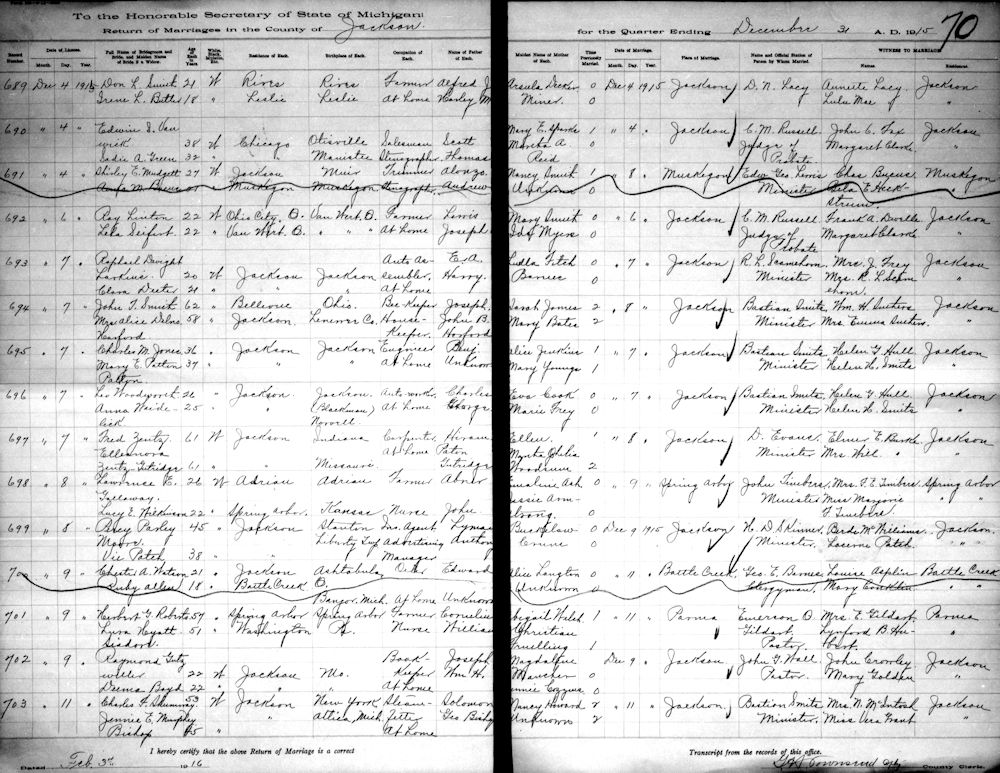 To the Honorable Secretary of State of Michigan:
Return of Marriages in the County of Jackson
for the Quarter Ending December 31 A. D. 1915
70
Record Number
Date of License.
Month. Day. Year.
Full Name of Bridegroom and Bride, and Maiden Name of Bride if a Widow.
Age in Years
Residence of Each.
Birthplace of Each.
Occupation of Each.
Name of Father
Maiden Name of Mother
Times Previously Married.
Date of Marriage.
Month. Day. Year.
Place of Marriage.
Name and Official Station of Person by Whom Married.
WITNESS TO MARRIAGE
Names.
Residence.
689 Dec 4 1915 Don L. Smith 21 W Rives Rives Farmer Alfred J Ursula Decker 0 Dec 4 1915 Jackson D. N. Lacy Annette Lacy Jackson
Irene L. Butler 18 " Leslie Leslie At Home Harley Miner 0 Lulu Mae "
690 " 4 " Edwin S. Van Mary E. Sparks 1 " 4 " Jackson C. M. Russell John C. Fox Jackson
wick 38 W Chicago Otisville Salesman Scott Martha A. 0 Judge of Margaret Clark "
Sadie A. Green 32 " " Manistee Stenographer Thomas Reed Probate
691 " 4 " Shirley E. Mudgett 27 W Jackson Muir Trimmer Alonzo Nancy Smith 1 " 8 " Muskegon Edw. Geo. Lewis Chas Byrus Muskegon
" Muskegon Muskegon Stenograph. Andrew Unknown 0 Minister
692 " 6 " Ray Linton 22 W Ohio City, O. Van Wert, O. Farmer Lewis Mary Smith 0 " 6 " Jackson C. M. Russell Frank A. Jackson
Lela Seifert 22 " Van Wert, O. " " At Home Joseph Ida Myers 0 Judge of Margaret Clark "
Probate
693 " 7 " Raphael Dwight Auto As- E. A. Luella Fitch 0 " 7 " Jackson R. L. Mrs. J. Frey Jackson
Larkins 20 W Jackson Jackson sembler Harry 0 Minister Mrs. R. L. "
Clara Dexter 21 " " " At Home
694 " 7 " John T. Smith 62 " Bellevue Ohio Bee Keeper Joseph Sarah James 2 " 8 " Jackson Bastian Smits Wm. H. Jackson
Mrs Alice Delno 58 " Jackson Lenawee Co. House- John B. Mary Bates 2 Minister Mrs Emma "
Horford Keeper Horford
695 " 7 " Charles M. Jones 36 " Jackson Jackson Engineer Benj. Alice Jenkins 1 " 7 " Jackson Bastian Smits Helen G. Hull Jackson
Mary C. Patton 37 " " " At Home Unknown Mary Youngs 1 Minister Helen H. Smits "
Patton
696 " 7 " Leo Woodworth 26 " Jackson Jackson Auto work. Charles Eva Cook 0 " 7 " Jackson Bastian Smits Helen G. Hull Jackson
Anna Weide- 25 " " (Blackman) At Home George Marie Frey 0 Minister Helen H. Smits "
Norvell
697 " 7 " Fred Zentz 61 W Jackson Indiana Carpenter Hiram Ellen 1 " 8 " Jackson D. Evans Elmer E. Burke Jackson
Elleanora At Home Paton Minister Mrs Will "
Zentz Gitridge 61 " " Missouri Gitridge Woodrum 2
698 " 8 " Lawrence E. 26 W Adrian Adrian Farmer Abner Emaline Ash 0 " 9 " Spring Arbor John Timbers Mrs. F. E. Timbers Spring Arbor
Galloway Jessie Arm- Minister Miss Marjorie "
Lucy E. Hickman 22 " Spring Arbor Kansas Nurse John strong 0 F. Timbers
699 " 8 " Percy Parley 45 " Jackson Stanton Ins. Agent Lyman 0 Dec 9 1915 Jackson H. D. Skinner Birdie McWilliams Jackson
Moore Liberty Twp Advertising Anthony 0 Minister Luzerne Patch "
Vie Patch 38 " " Manager
700 " 9 " Chester A. Watson 21 " Jackson Ashtabula Edward Alice Langton 0 " 11 " Battle Creek Geo. E. Barnes Louise Asplin Battle Creek
Ruby Allen 18 " Battle Creek O. Unknown 0 Clergyman Mary "
Bangor, Mich. At Home Unknown
701 " 9 " Herbert G. Roberts 57 " Spring Arbor Spring Arbor Farmer Cornelius Abigail Welch 1 " 11 " Parma Emerson O. Mrs. E. Gildart Parma
Lyra Hyatt 51 " Washington Pa. Nurse William Christian Gildart Lynford B. Hu- "
1 Pastor bert
702 " 9 " Raymond Gutz Book- Joseph Magdalene 0 Dec 9 " Jackson John G. Wall John Crowley Jackson
weller 22 W Jackson Mo. Keeper Wm. H. Pastor Mary Golden "
Deena Boyd 22 " " " At Home 0
703 " 11 " Charles F. Shumway 53 W Jackson New York Steam- Solomon Nancy Howard 2 " 11 " Jackson Bastian Smits Mrs. N. McIntosh Jackson
Jennie E. Murphy " Attica Mich. fitter Geo Bishop Unknown 2 Minister Miss Vera Grant "
Bishop 45 " At Home
I hereby certify that the above Return of Marriage is a correct
Transcript from the records of this office.
Dated Feb 3rd 1916
Townsend County Clerk.